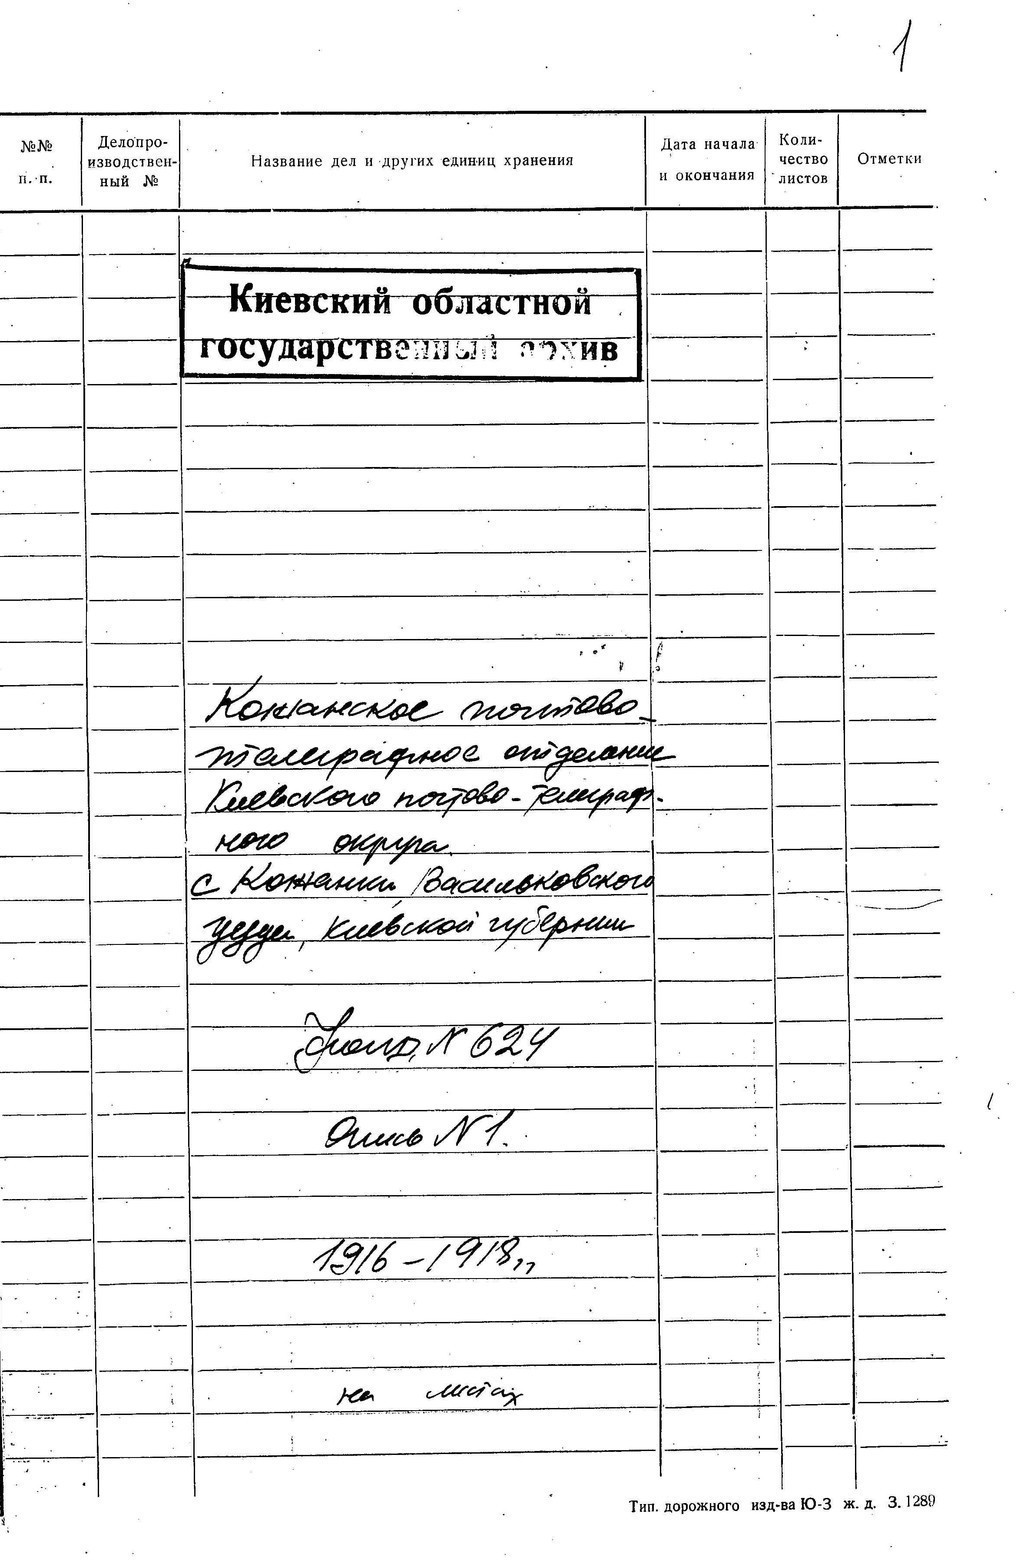 1
№№
п. п.
Делопро-
изводствен-
ный №
Название дел и других единиц хранения
Дата начала
и окончания
Коли-
чество
листов
Отметки
Киевский областной
государственный архив
Кожанское почтово-
телеграфное отделение
Киевского почтово-телеграф-
ного округа
с Кожанки Васильковского
уезда, Киевской губернии
Фонд N 624
Опись N 1.
1916-1918 гг
на листах
Тип. дорожного изд-ва Ю-З ж. д. З. 1289